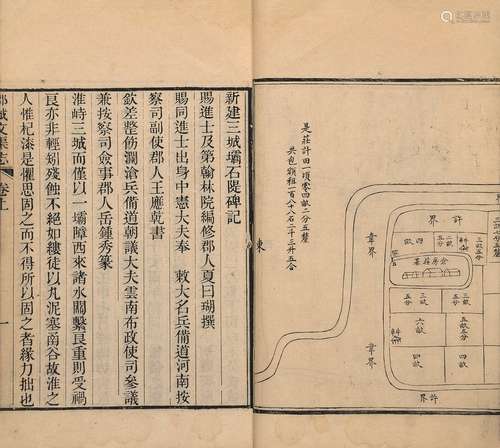 是莊許田一頃零四畝二分五釐
共包額租一百八十八石二十三升五合
許界
四畝
倉房莊基
六畝
四畝
四畝
許界
韋界
韋界
東
新建三城壩石隄碑記
賜進士及第翰林院編修郡人夏曰瑚撰
賜同進士出身中憲大夫奉　敕大名兵備道河南按
察司副使郡人王應乾書
欽差整飭瀾滄兵備道朝議大夫雲南布政使司參議
兼按察司僉事郡人岳鍾秀篆
淮峙三城而僅以一壩障西來諸水關繫良重則受禍
良亦非輕矧殘蝕不絕如縷徒以丸泥塞函谷故淮之
人惟杞漆是懼思固之而不得所以固之者緣力拙也
卷上
一